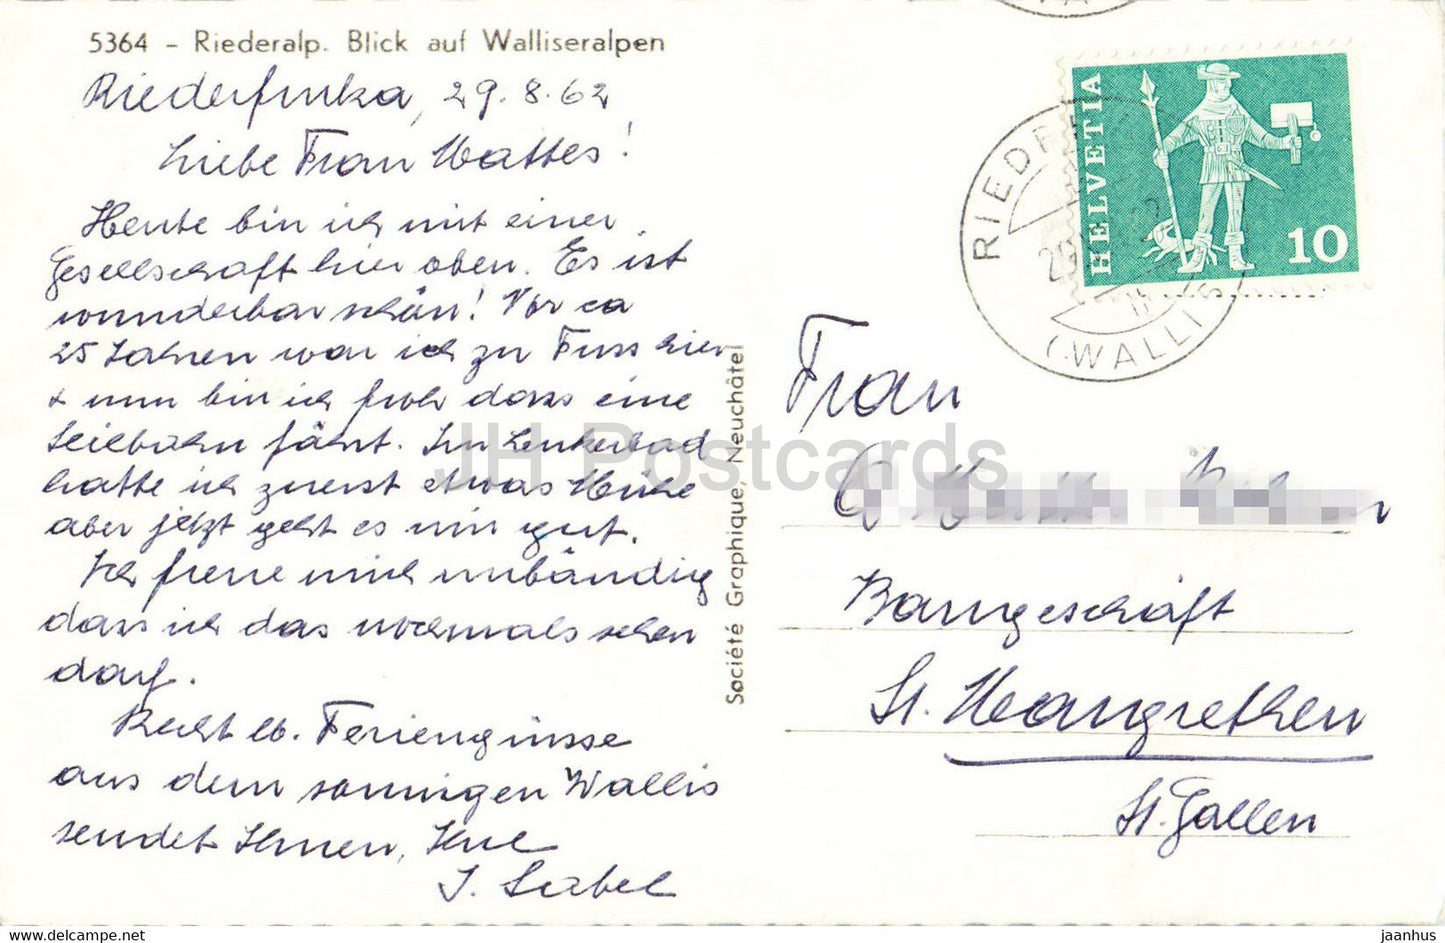 5364 - Riederalp. Blick auf Walliseralpen
Riederfurka, 29.8.62
Liebe Frau Mattes!
Heute bin ich mit einer
Gesellschaft hier oben. Es ist
wunderbar schön! Vor ca
25 Jahren war ich zu Fuss hier
+ nun bin ich froh dass eine
Seilbahn fährt. In Leukerbad
hatte ich zuerst etwas Mühe
aber jetzt geht es mir gut.
Ich freue mich unbändig
dass ich das nochmals sehen
darf.
Recht lb. Feriengrüsse
aus dem sonnigen Wallis
sendet Ihnen, Ihre
J. Sabel
Société Graphique, Neuchâtel
HELVETIA
10
(WALLIS
Frau
Baugeschäft
St. Margrethen
St. Gallen
JH Postcards
www.hippostcard.com
jaanhus